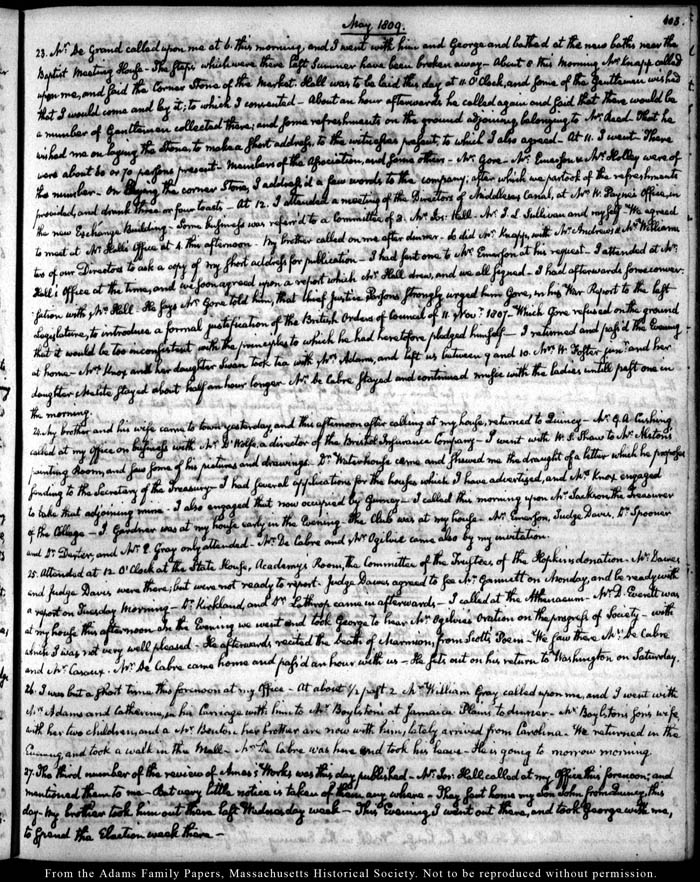 May 1809.
403.
23. Mr. De Grand called upon me at 6. this morning, and I went with him and George and bathed at the new baths near the
Baptist Meeting House - The steps which were there last Summer have been broken away - About 8 this morning Mr. Knapp called
upon me, and said the Corner Stone of the Market Hall was to be laid this day at 11 O'Clock, and some of the Gentlemen wished
that I would come and lay it; to which I consented - About an hour afterwards he called again and said that there would be
a number of Gentlemen collected there; and some refreshments on the ground adjoining, belonging to Mr. Read. That he
wished me on laying the Stone, to make a short address, to the witnesses present, to which I also agreed - At 11. I went - There
were about 60 or 70 persons present - Members of the Association, and some others - Mr. Gore - Mr. Emerson & Mr. Holley were of
the number - On laying the corner Stone, I address'd a few words to the company; after which we partook of the refreshments
provided, and drank three or four toasts - At 12. I attended a meeting of the Directors of Middlesex Canal, at Mr. W. Payne's Office, in
the new Exchange Building - Some business was referr'd to a Committee of 3. Mr. Jos: Hall - Mr. J. L. Sullivan and myself - We agreed
to meet at Mr. Hall's Office at 4 this afternoon - My brother called on me after dinner - So did Mr. Knapp, with Mr. Andrews & Mr. Williams
two of our Directors to ask a copy of my short address for publication - I had sent one to Mr. Emerson at his request - I attended at Mr.
Hall's Office at the time, and we soon agreed upon a report which Mr. Hall drew, and we all signed - I had afterwards some conver-
sation with Mr. Hall - He says Mr. Gore told him, that Chief Justice Parsons strongly urged him Gore, in his War Report to the last
Legislature, to introduce a formal justification of the British Orders of Council of 11 Novr. 1807. - Which Gore refused on the ground
that it would be too inconsistent with the principles to which he had heretofore pledged himself - I returned and pass'd the Evening
at home - Mrs. Knox and her daughter Swan took tea with Mrs. Adams, and left us between 9 and 10. Mrs. W. Foster junr. and her
daughter stayed about half an hour longer - Mr. De Cabre stayed and continued music with the ladies untill past one in
the morning.
24. My brother and his wife came to town yesterday, and this afternoon after calling at my house, returned to Quincy - Mr. G. A. Cushing
called at my office on business with Mr. D'Wolfe, a director of the Bristol Insurance Company - I went with W. S. Shaw to Mr.
painting Room, and saw some of his pictures and drawings. Dr. Waterhouse came and shewed me the draught of a letter which he proposes
sending to the Secretary of the Treasury - I had several applications for the houses which I have advertised, and Mrs. Knox engaged
to take that adjoining mine - I also engaged that now occupied by Gurney - I called this morning upon Mr. Jackson the Treasurer
of the College - I. Gardner was at my house early in the Evening. The Club was at my house - Mr. Emerson, Judge Davis, Dr. Spooner
and Dr. Dexter, and Mr. P. Gray only attended - Mr. De Cabre and Mr. Ogilvie came also by my invitation.
25. Attended at 12 O'Clock at the State House, Academy's Room, the Committee of the Trustees of the Hopkins donation - Mr. Dawes
and Judge Davis were there; but were not ready to report - Judge Dawes agreed to see Mr. Gannett on Monday, and be ready with
a report on Tuesday Morning - Dr. Kirkland, and Dr. Lathrop came in afterwards - I called at the Athenaeum - Mr. D. Everett was
at my house this afternoon. In the Evening we went and took George to hear Mr. Ogilvie's Oration on the progress of Society - with
which I was not very well pleased - He afterwards recited the Death of Marmion, from Scott's Poem - We saw there Mr. De Cabre
and Mr. Caraux. Mr. De Cabre came home and pass'd an hour with us - He sets out on his return to Washington on Saturday.
26. I was but a short time this forenoon at my Office - At about 1/2 past 2 Mr. William Gray called upon me, and I went with
Mrs. Adams and Catherine, in his Carriage with him to Mr. Boylston's at Jamaica Plain, to dinner - Mr. Boylston's son's wife,
with her two Children, and a Mr. her brother are now with him, lately arrived from Carolina - We returned in the
Evening, and took a walk in the Mall - Mr. De Cabre was here and took his leave - He is going to morrow morning.
27. The third number of the review of Ames's Works was this day published - Mr. Jos: Hall called at my Office this forenoon; and
mentioned them to me - But very little notice is taken of them any where - They sent home my Son John from Quincy, this
day - My brother took him out there last Wednesday week - This Evening I went out there, and took George with me,
to spend the Election week there -
From the Adams Family Papers, Massachusetts Historical Society. Not to be reproduced without permission.